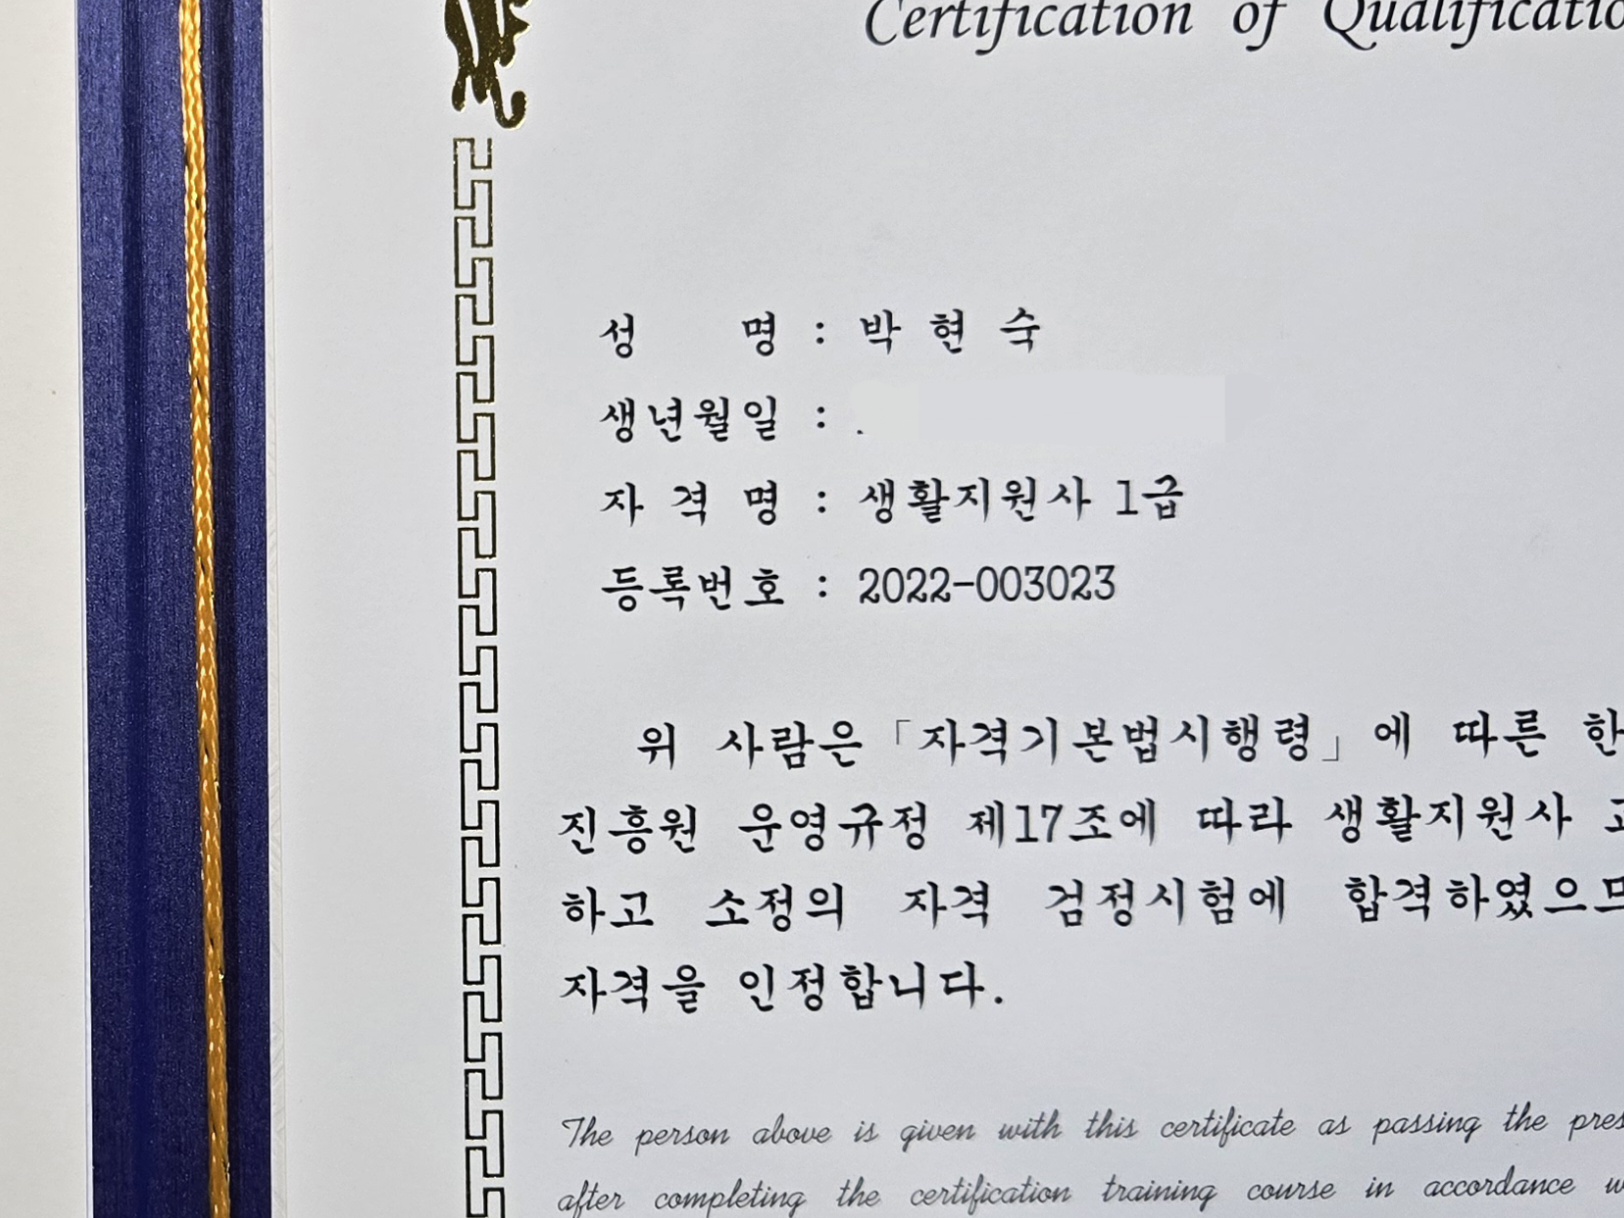 Certification of Qualificatio
성 명 : 박 현 숙
생년월일 : .
자 격 명 : 생활지원사 1급
등록번호 : 2022-003023
위 사람은 「자격기본법시행령」에 따른 한
진흥원 운영규정 제17조에 따라 생활지원사
하고 소정의 자격 검정시험에 합격하였으므
자격을 인정합니다.
The person above is given with this certificate as passing the pres
after completing the certification training course in accordance w